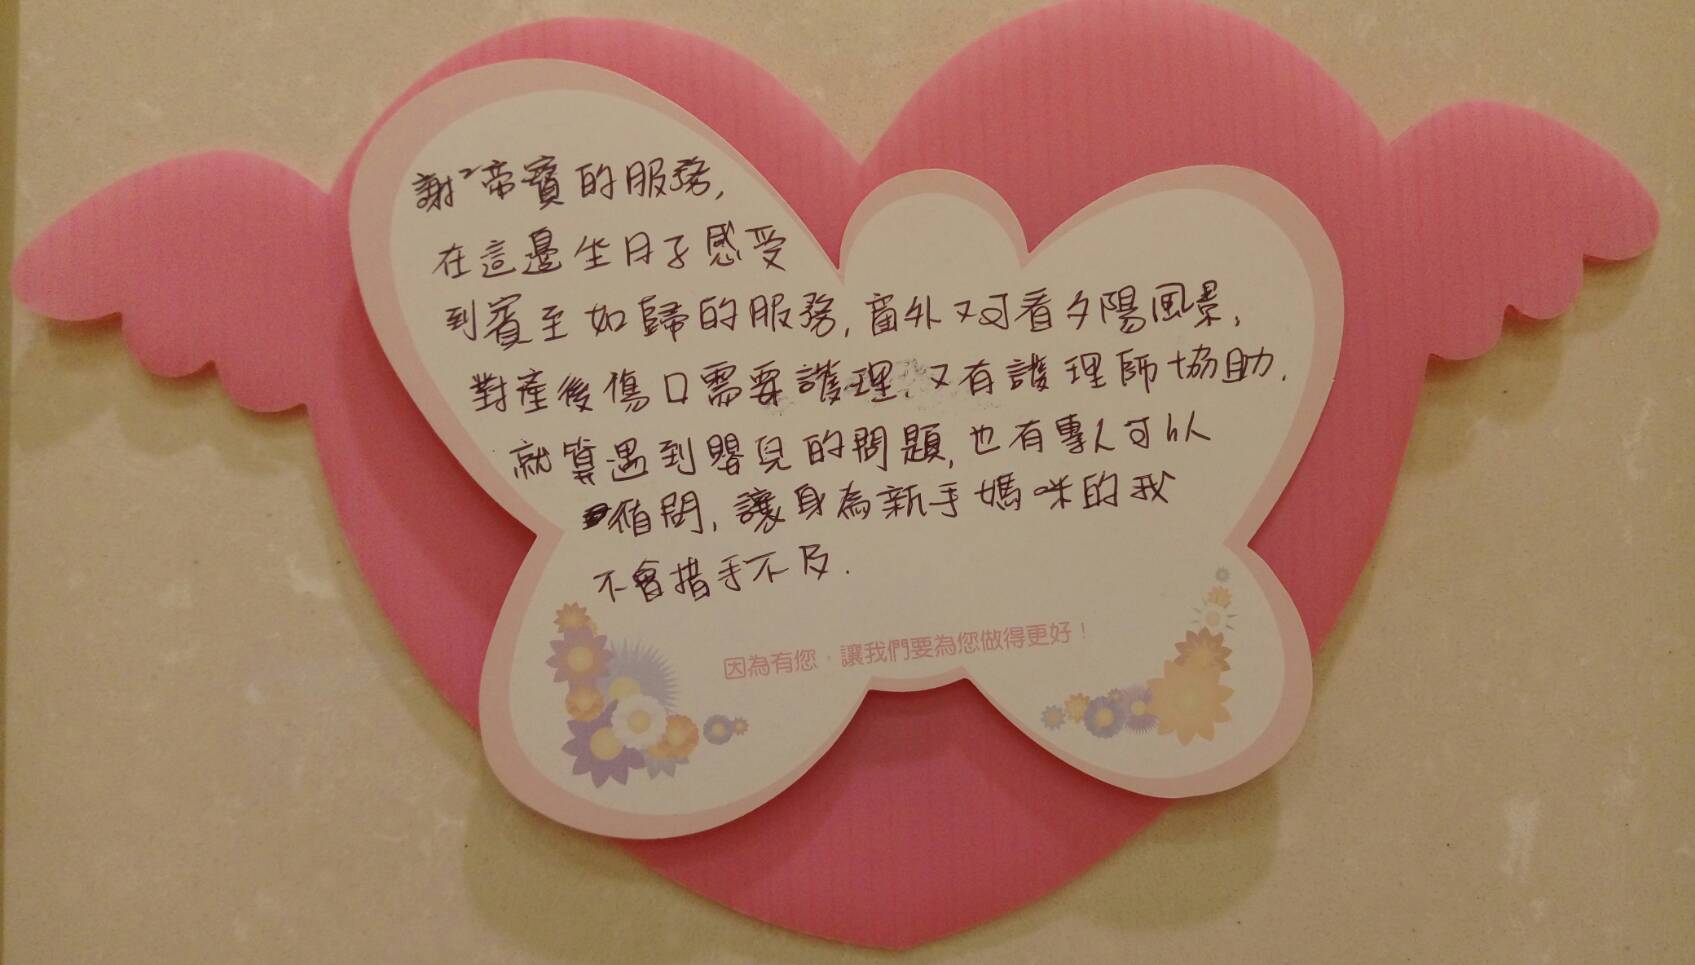 謝²帝寶的服務,
在這邊坐月子感受
到賓至如歸的服務,窗外又可看夕陽風景,
對產後傷口需要護理,又有護理師協助.
就算遇到嬰兒的問題,也有專人可以
值問,讓身為新手媽咪的我
不會措手不及.
因為有您,讓我們要為您做得更好！